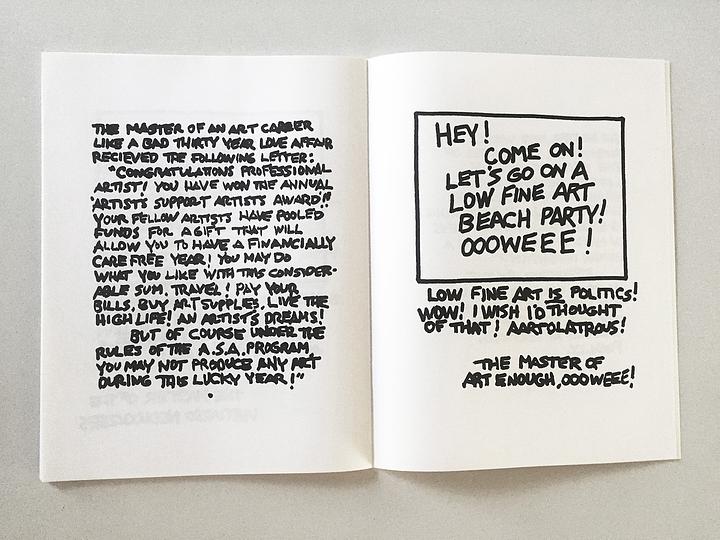 THE MASTER OF AN ART CAREER
LIKE A BAD THIRTY YEAR LOVE AFFAIR
RECIEVED THE FOLLOWING LETTER:
"CONGRATULATIONS PROFESSIONAL
ARTIST! YOU HAVE WON THE ANNUAL
'ARTISTS SUPPORT ARTISTS AWARD'!!
YOUR FELLOW ARTISTS HAVE POOLED
FUNDS FOR A GIFT THAT WILL
ALLOW YOU TO HAVE A FINANCIALLY
CARE FREE YEAR! YOU MAY DO
WHAT YOU LIKE WITH THIS CONSIDER-
ABLE SUM. TRAVEL! PAY YOUR
BILLS, BUY ART SUPPLIES, LIVE THE
HIGH LIFE! AN ARTIST'S DREAMS!
BUT OF COURSE UNDER THE
RULES OF THE A.S.A. PROGRAM
YOU MAY NOT PRODUCE ANY ART
DURING THIS LUCKY YEAR!"
HEY!
COME ON!
LET'S GO ON A
LOW FINE ART
BEACH PARTY!
OOOWEEE!
LOW FINE ART IS POLITICS!
WOW! I WISH I'D THOUGHT
OF THAT! AARTOLATROUS!
THE MASTER OF
ART ENOUGH, OOOWEEE!